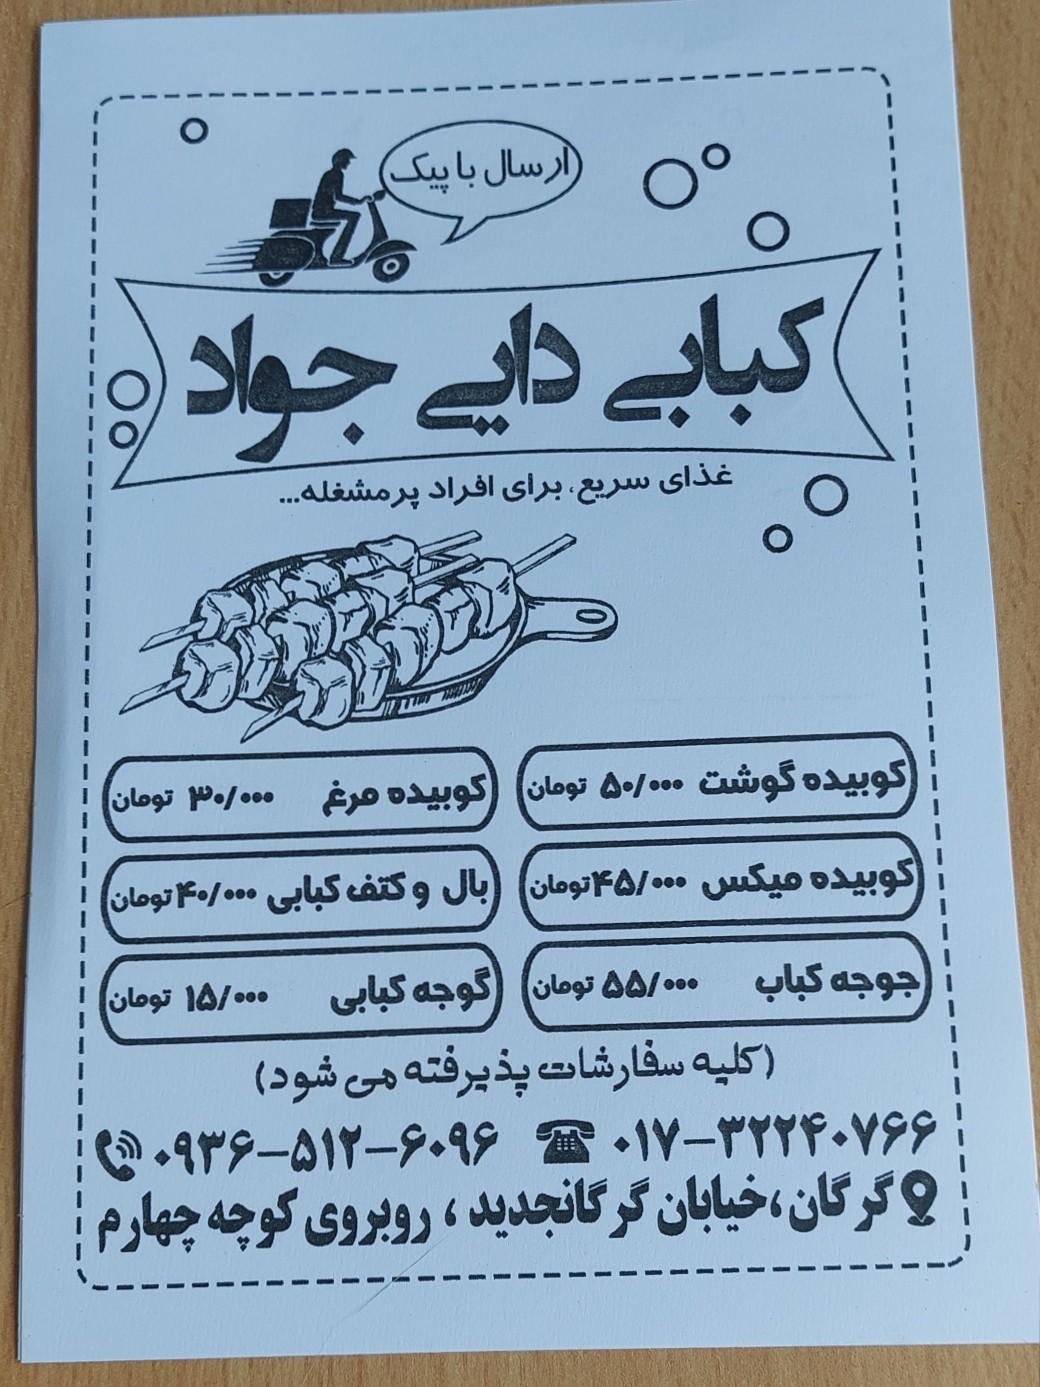 ارسال با پیک
کبابی دایی جواد
غذای سریع، برای افراد پرمشغله...
کوبیده گوشت ۵۰/۰۰۰ تومان
کوبیده مرغ ۳۰/۰۰۰ تومان
کوبیده میکس ۴۵/۰۰۰ تومان
بال و کتف کبابی ۴۰/۰۰۰ تومان
جوجه کباب ۵۵/۰۰۰ تومان
گوجه کبابی ۱۵/۰۰۰ تومان
(کلیه سفارشات پذیرفته می شود)
۰۱۷-۳۲۲۴۰۷۶۶ ۰۹۳۶-۵۱۲-۶۰۹۶
گرگان، خیابان گرگانجدید، روبروی کوچه چهارم